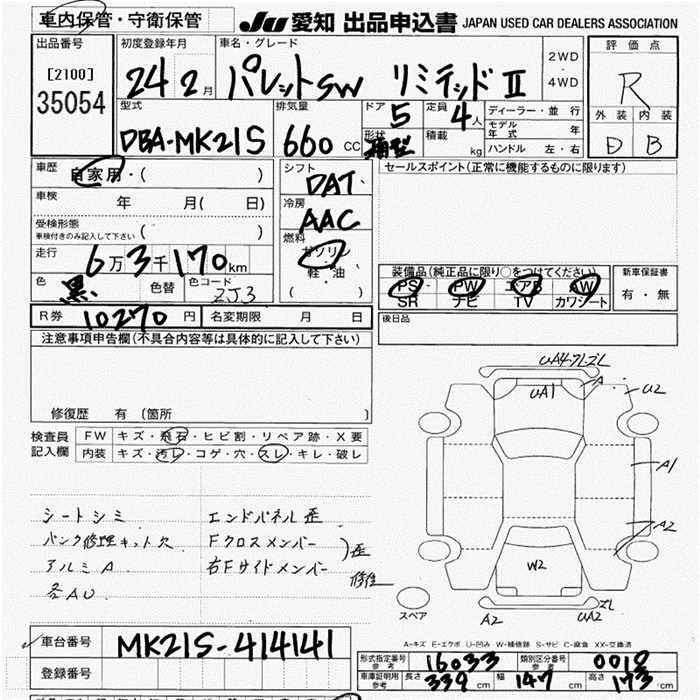 車内保管・守衛保管
JU 愛知 出品申込書 JAPAN USED CAR DEALERS ASSOCIATION
出品番号
[2100]
35054
初度登録年月
24 2月
車名・グレード
パレットSW リミテッドⅡ
2WD
・
4WD
評価点
R
外装 内装
D B
型式
DBA-MK21S
排気量
660 CC
ドア
5
形状
箱型
定員
4人
積載
kg
ディーラー・並行
モデル年式 年
ハンドル 左・右
車歴
自家用・( )
車検
年 月( 日)
受検形態
車検付きのみ記入して下さい ( )
走行
6万3千170km
色
黒
色替
色コード
ZJ3
シフト
DAT
冷房
AAC
燃料
ガソリン
軽・油
( )
セールスポイント(正常に機能するものに限ります)
装備品(純正品に限り○をつけてください)
PS PW エアB AW
SR ナビ TV カワシート
新車保証書
有・無
R券 10270円
名変期限 月 日
後日品
注意事項申告欄(不具合内容等は具体的に記入して下さい)
修復歴 有 〔箇所 〕
検査員記入欄
FW キズ・飛石・ヒビ割・リペア跡・X要
内装 キズ・汚レ・コゲ・穴・スレ・キレ・破レ
シートシミ
パンク修理キット欠
アルミA
各AU
エンドパネル歪
Fクロスメンバー
右Fサイドメンバー
歪
修復
UA4-フレ-ズレ
A
UA1
U2
A1
A2
W2
スペア
A2
ズレ
UA2
A-キズ E-エクボ U-凹み W-補修跡 S-サビ C-腐食 XX-交換済
車台番号
MK21S-414141
登録番号
形式指定番号
参考
16033
類別区分番号
参考
0018
車庫証明用
参考
長さ 339cm 幅 147cm 高さ 173cm